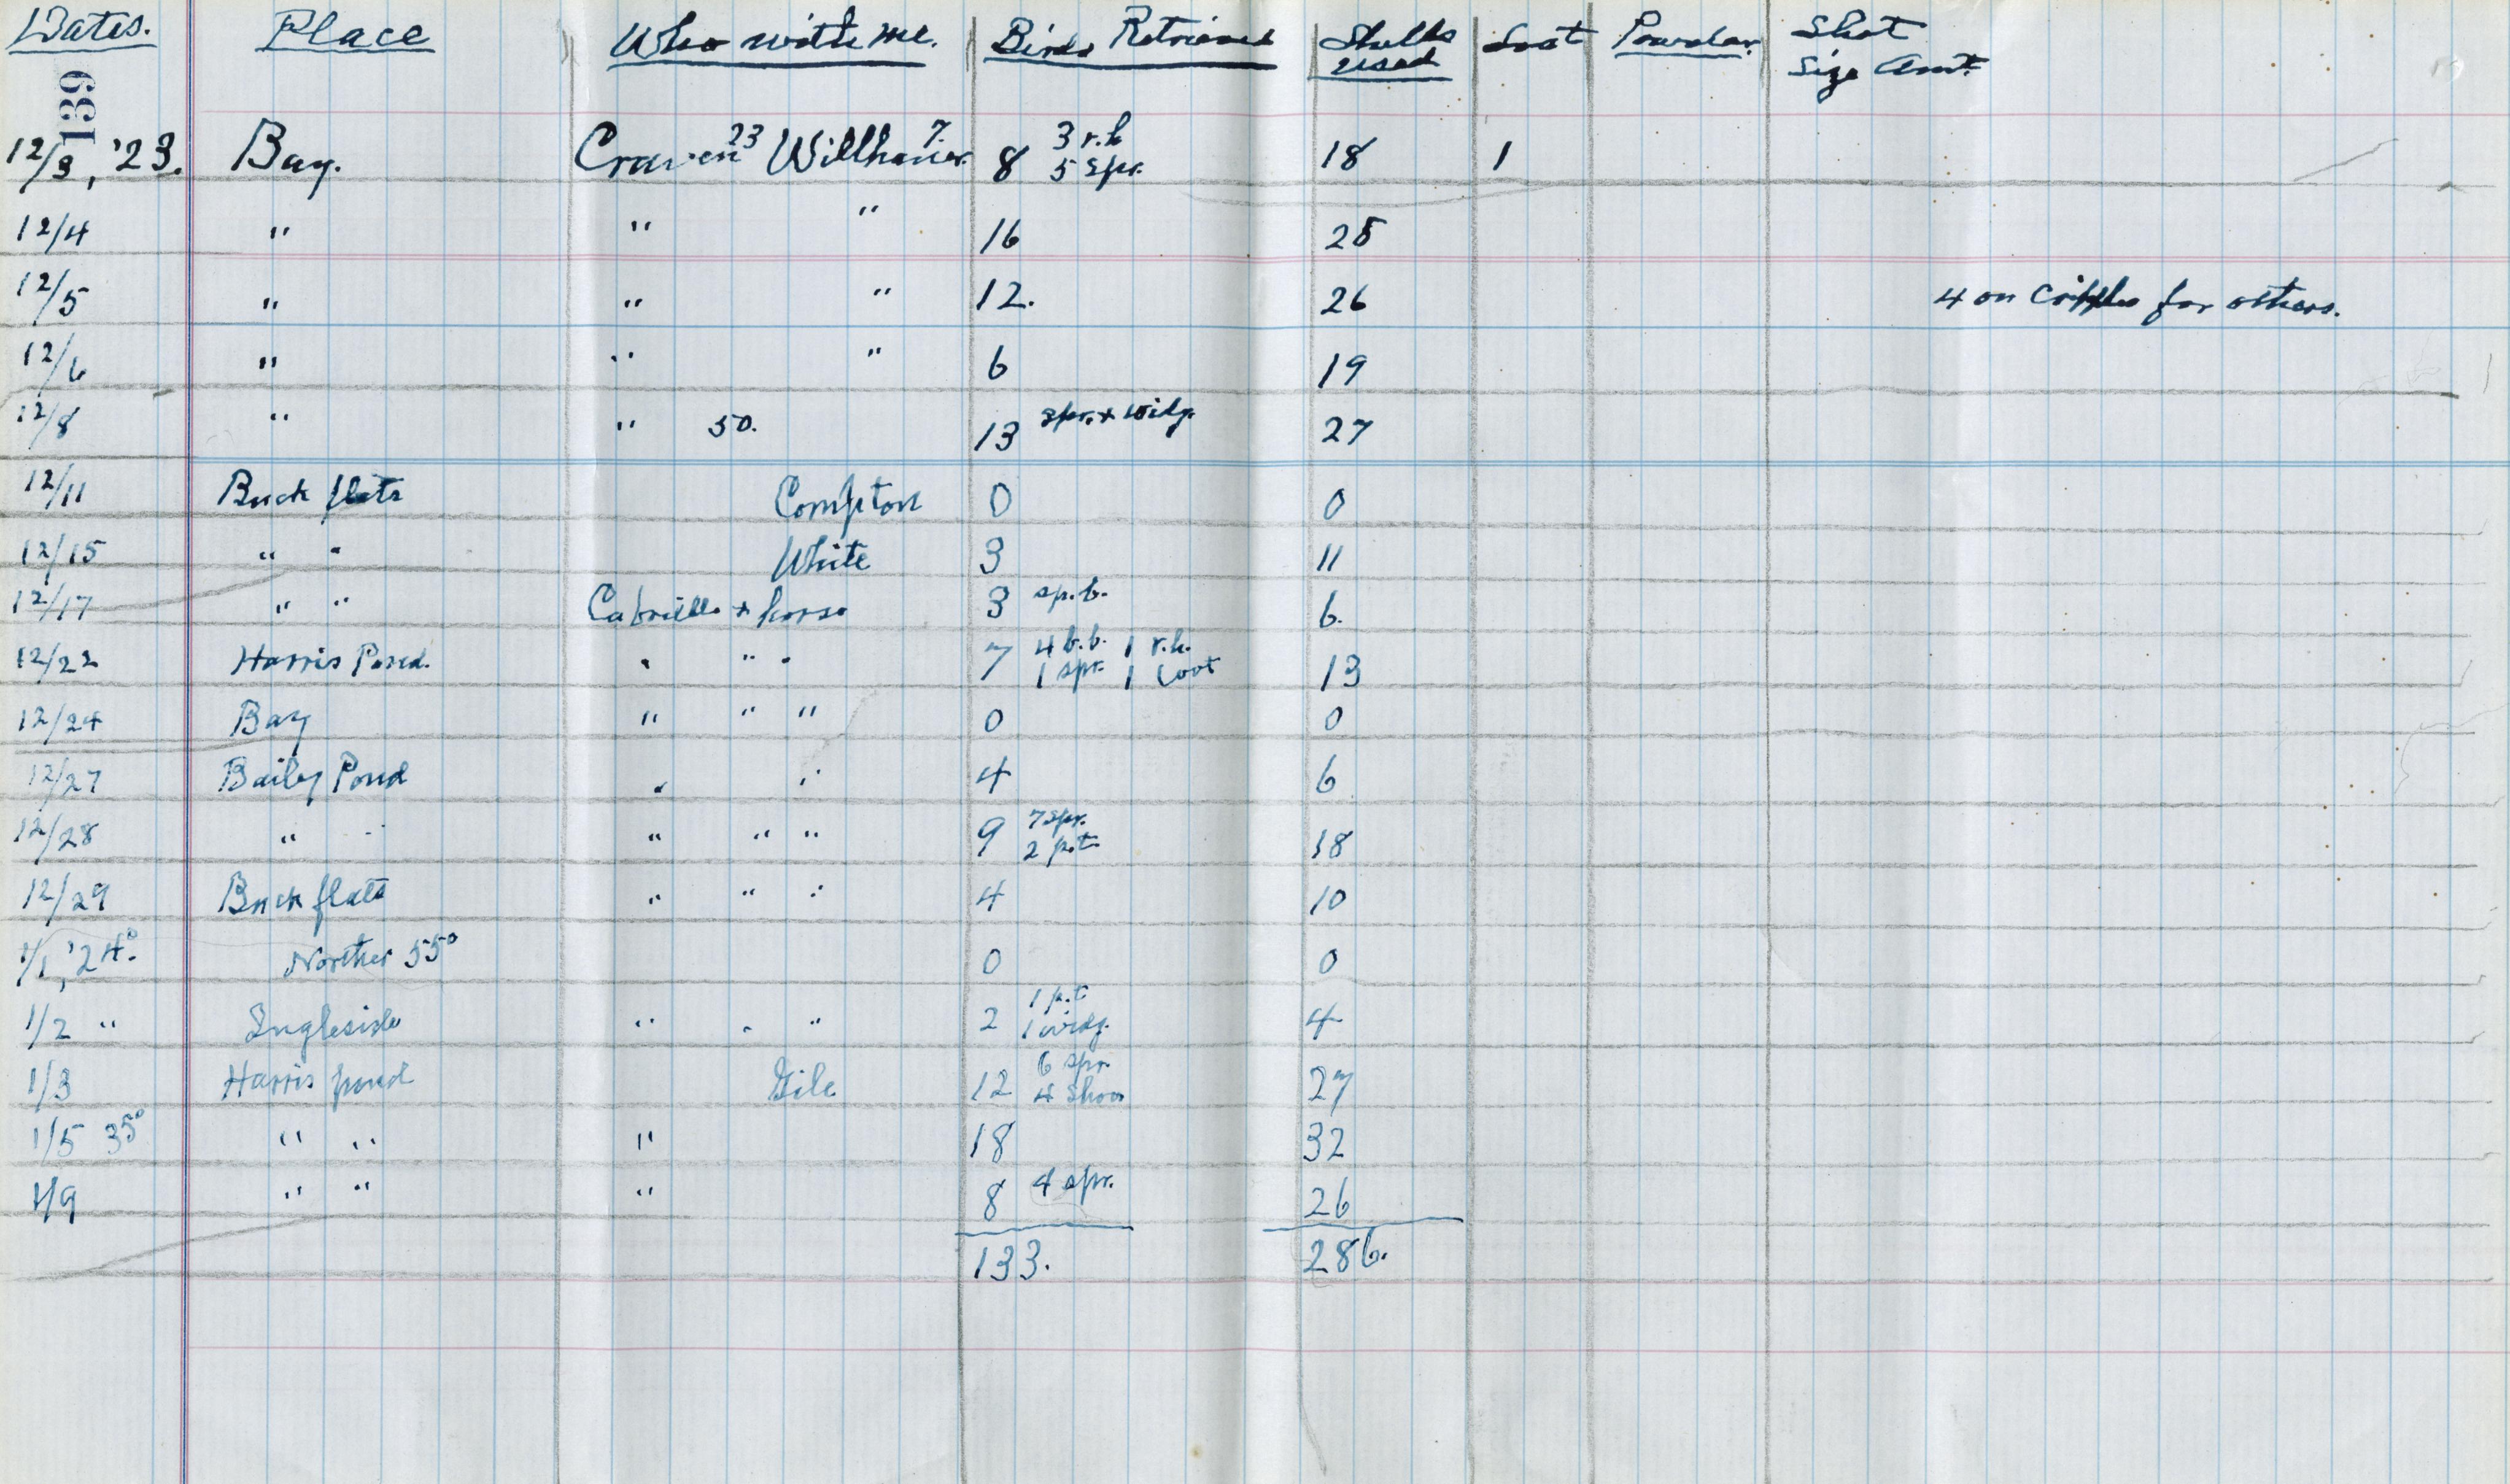 Dates. Place Who with me. Birds Retrieved Shells used Lost Powder. Shot Size Amt.
139
12/3, '23. Bay. Craven 23 7. 8 3 r.h 5 spr. 18 1
12/4 " " " 16 28
12/5 " " " 12. 26 4 on cripples for others.
12/6 " " " 6 19
12/8 " " 50. 13 spr. + widg. 27
12/11 Buck flats Compton 0 0
12/15 " " White 3 11
12/17 " " + horse 3 sp. b. 6.
12/22 Harris Pond. " " " 7 4 b.b. 1 r.h. 1 spr. 1 Coot 13
12/24 Bay " " " 0 0
12/27 Baily Pond " " 4 6
12/28 " " " " " 9 7 spr. 2 p.t. 18
12/29 Buck flats " " " 4 10
1/1, '24. Norther 55° 0 0
1/2 " Ingleside " " " 2 1 p.t 1 widg. 4
1/3 Harris pond Gile 12 6 spr. 4 Shov 27
1/5 35° " " " 18 32
1/9 " " " 8 4 spr. 26
133. 286.